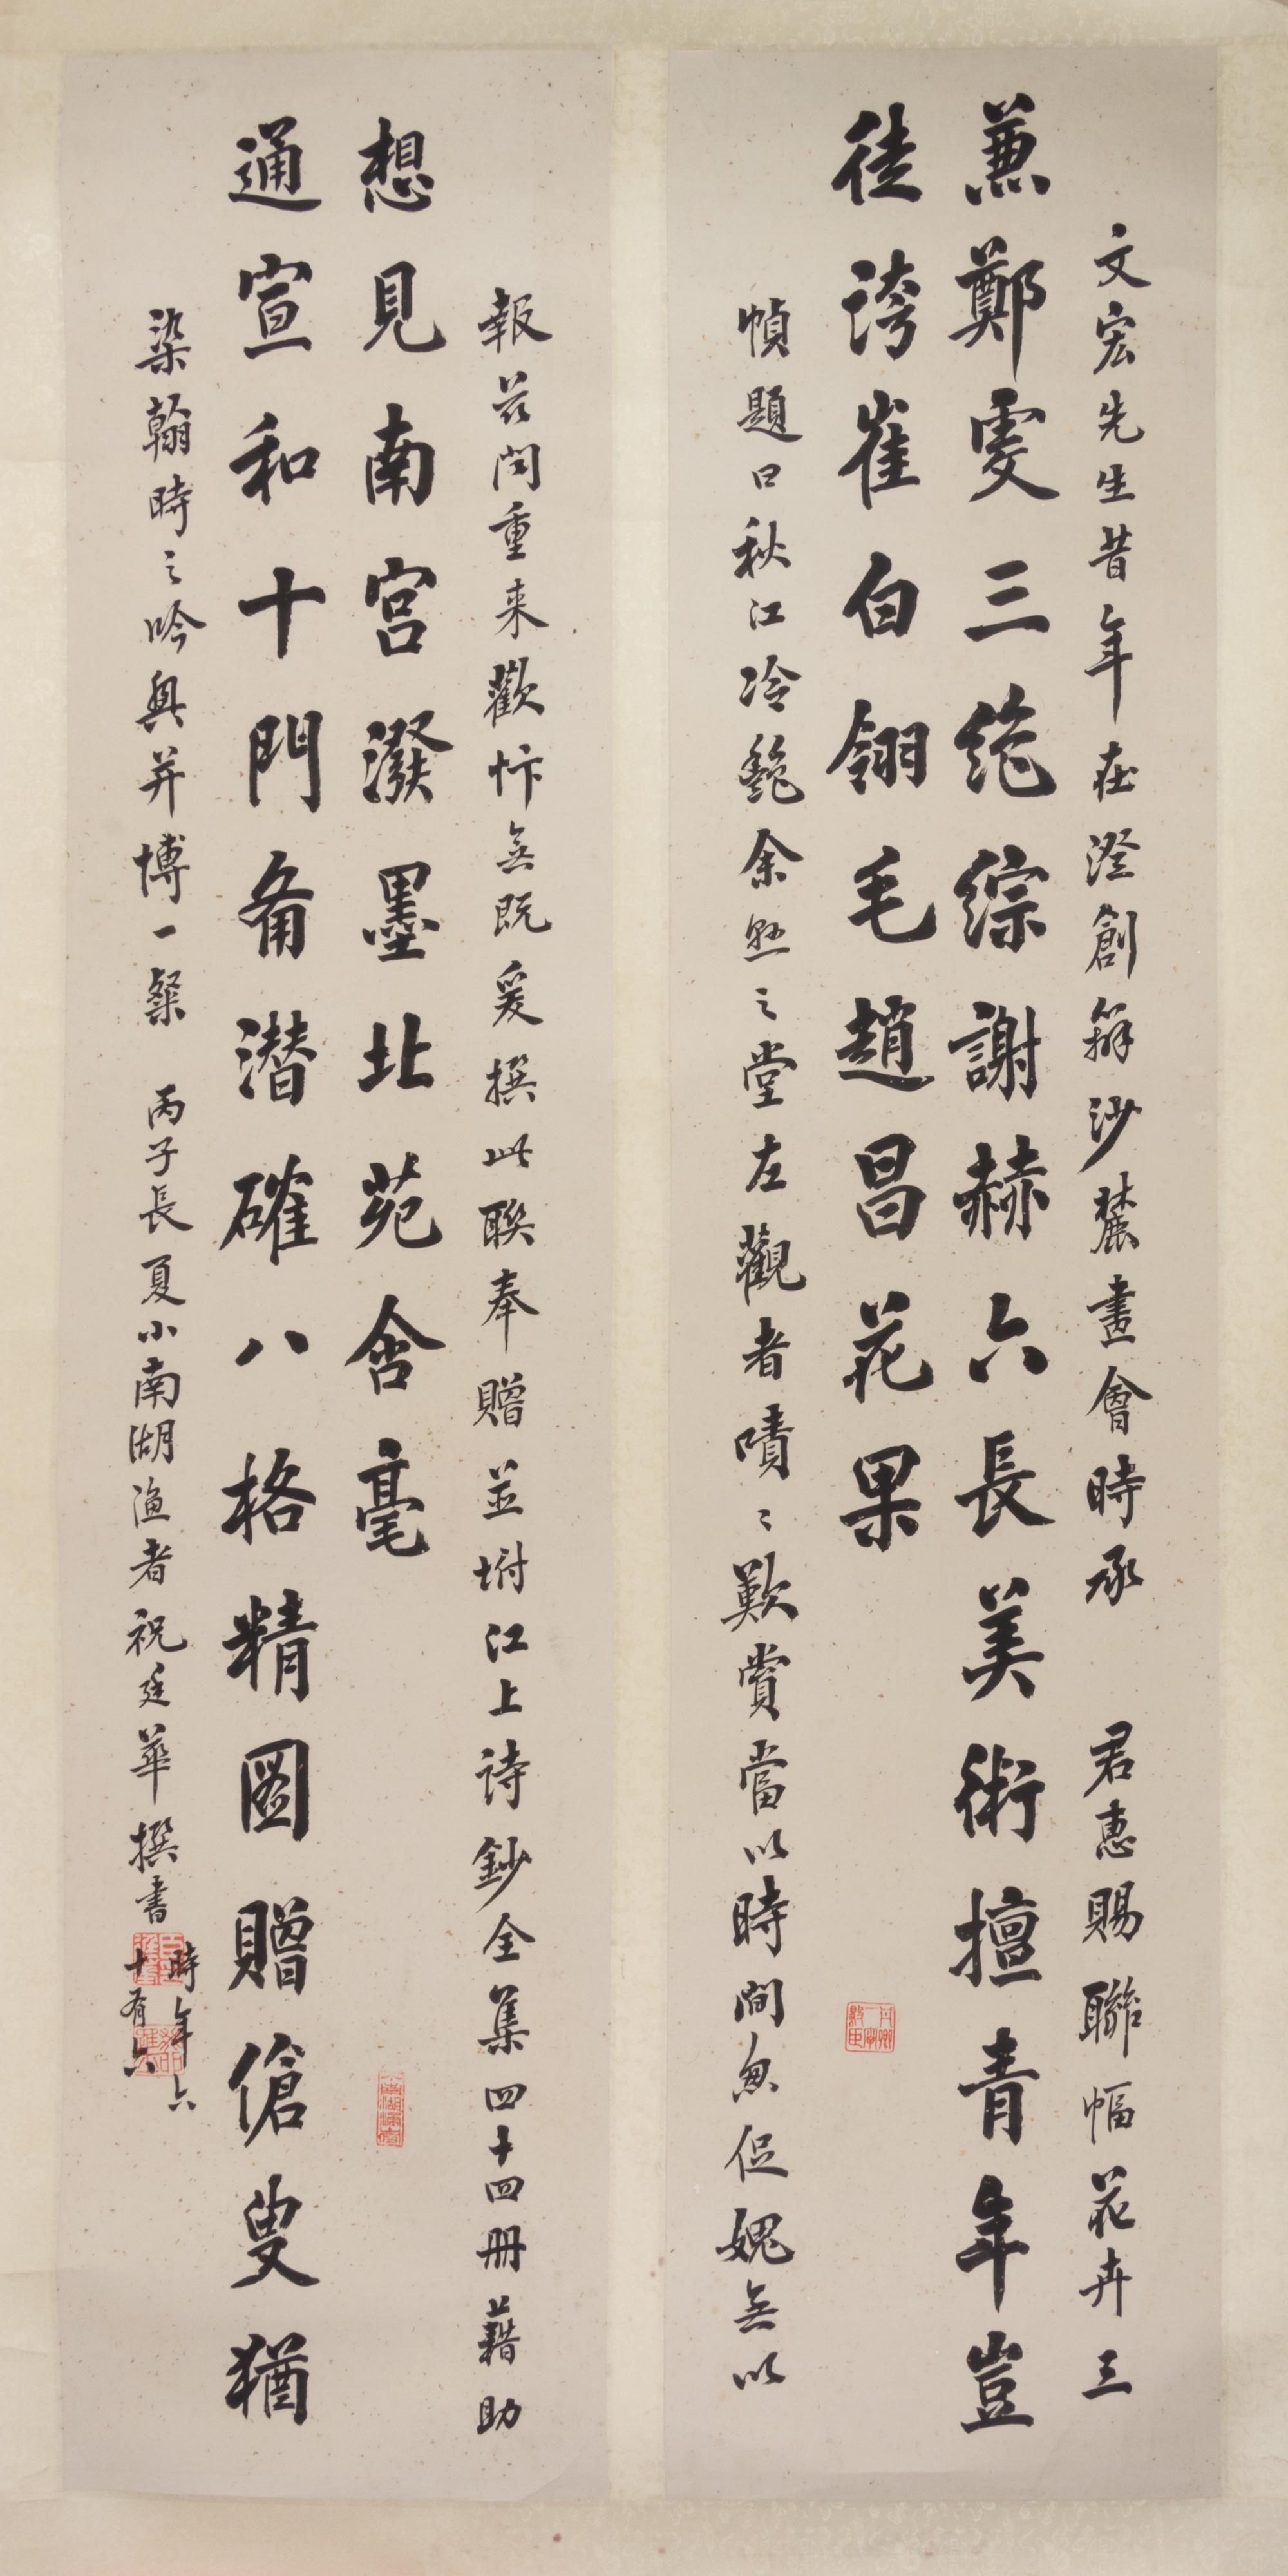 文宏先生昔年在澄創辦沙麓畫會時承 君惠賜聯幅花卉三
兼鄭虔三絶綜謝赫六長美術擅青年豈
徒誇崔白翎毛趙昌花果
幀題曰秋江冷艷余懸之堂左觀者嘖〻歎賞當以時間匆促媿無以
報茲聞重来歡忭無既爰撰此聯奉贈並坿江上诗鈔全集四十四冊藉助
想見南宮潑墨北苑含毫
通宣和十門备潛確八格精圖贈傖叟猶
染翰時之吟興并博一粲 丙子長夏小南湖漁者祝廷華撰書
時年六
十有六